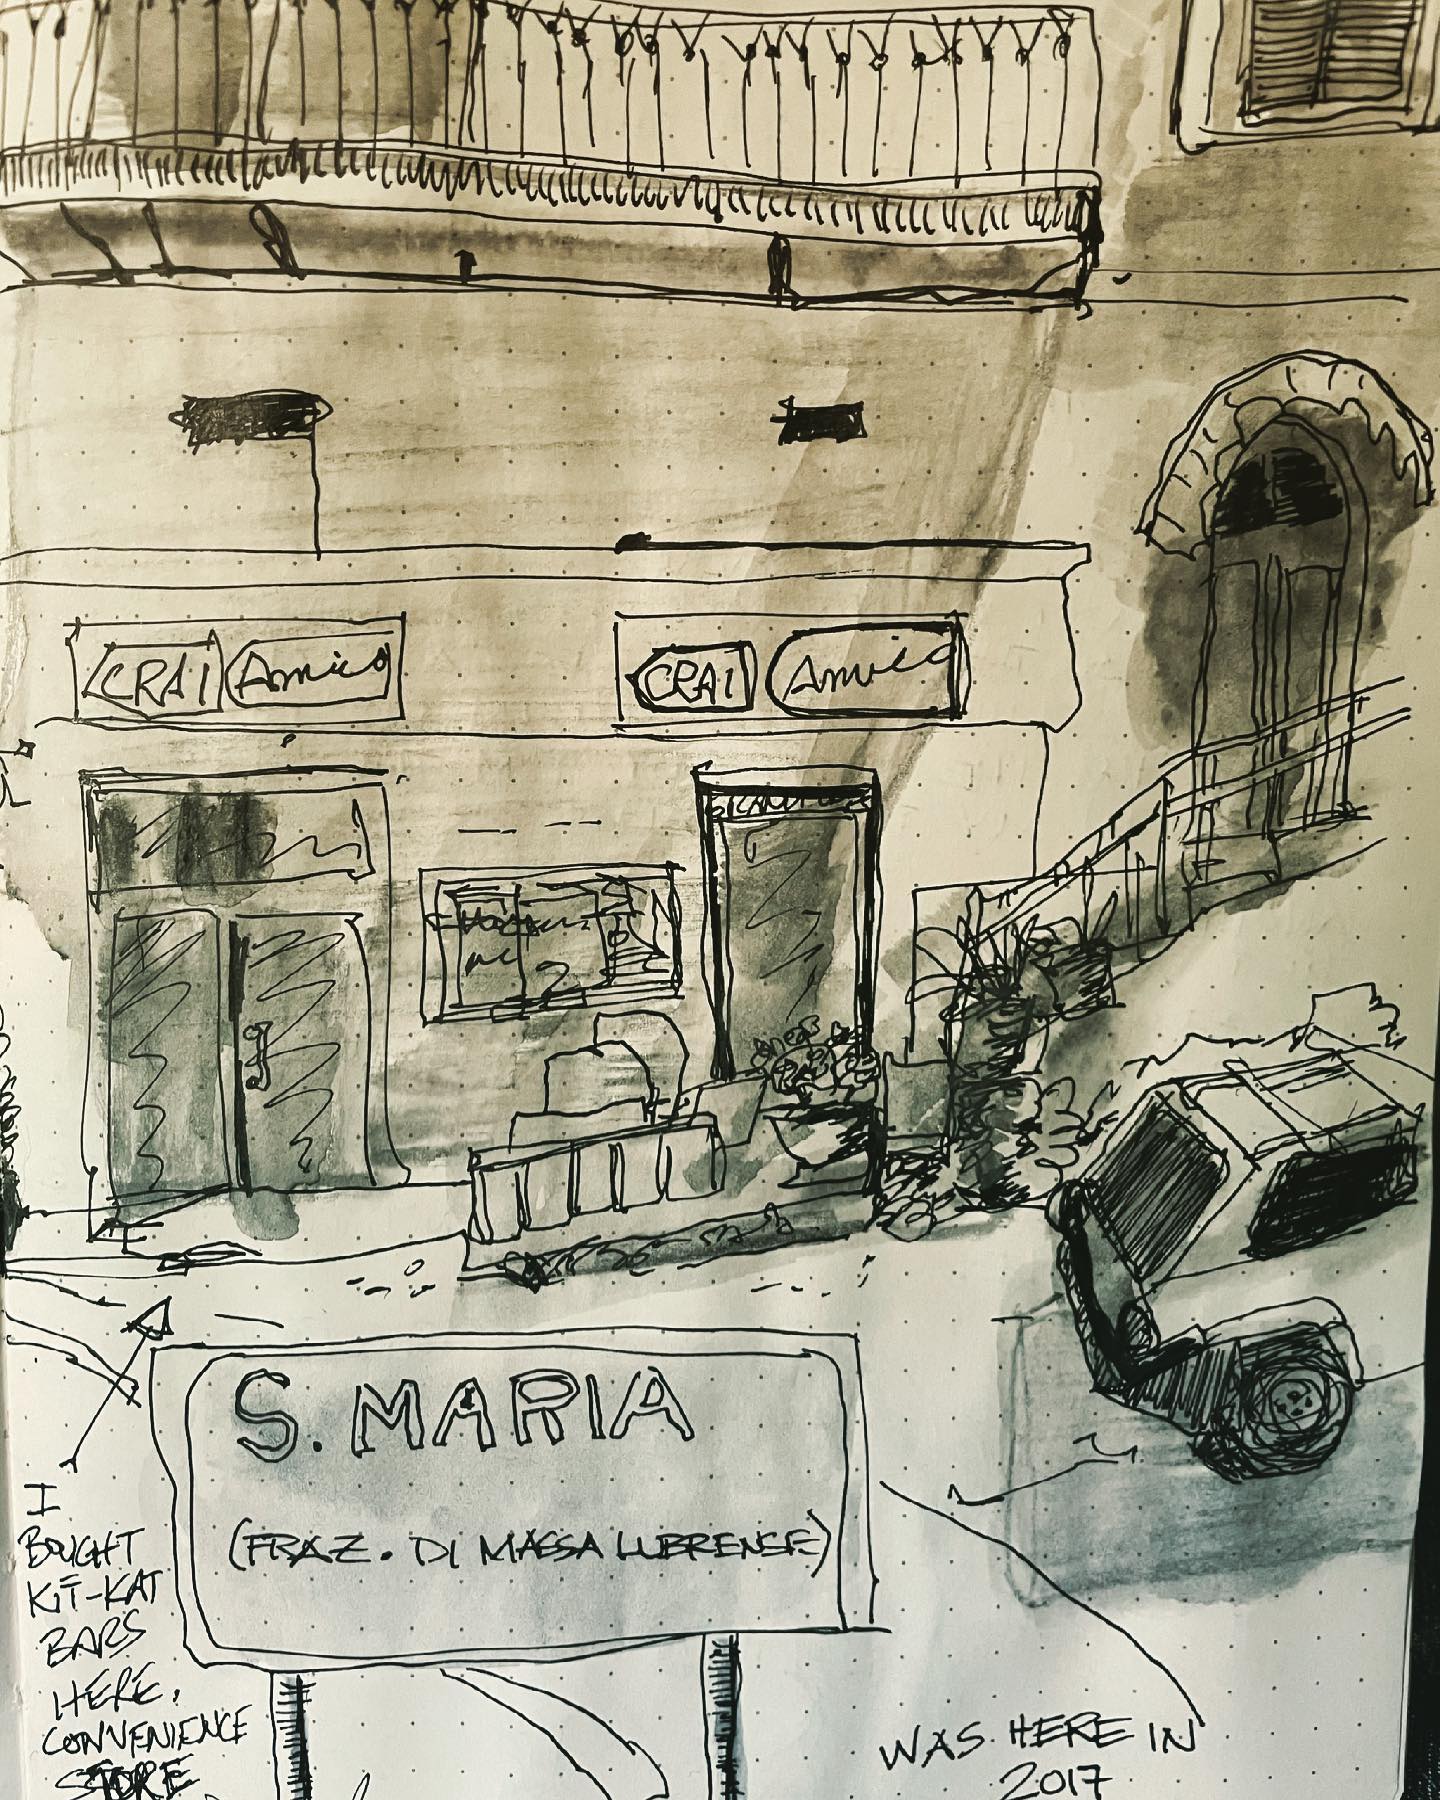 CRAI Amico
CRAI Amico
S. MARIA
(FRAZ. DI MASSA LUBRENSE)
I
BOUGHT
KIT-KAT
BARS
HERE.
CONVENIENCE
STORE
WAS HERE IN
2017